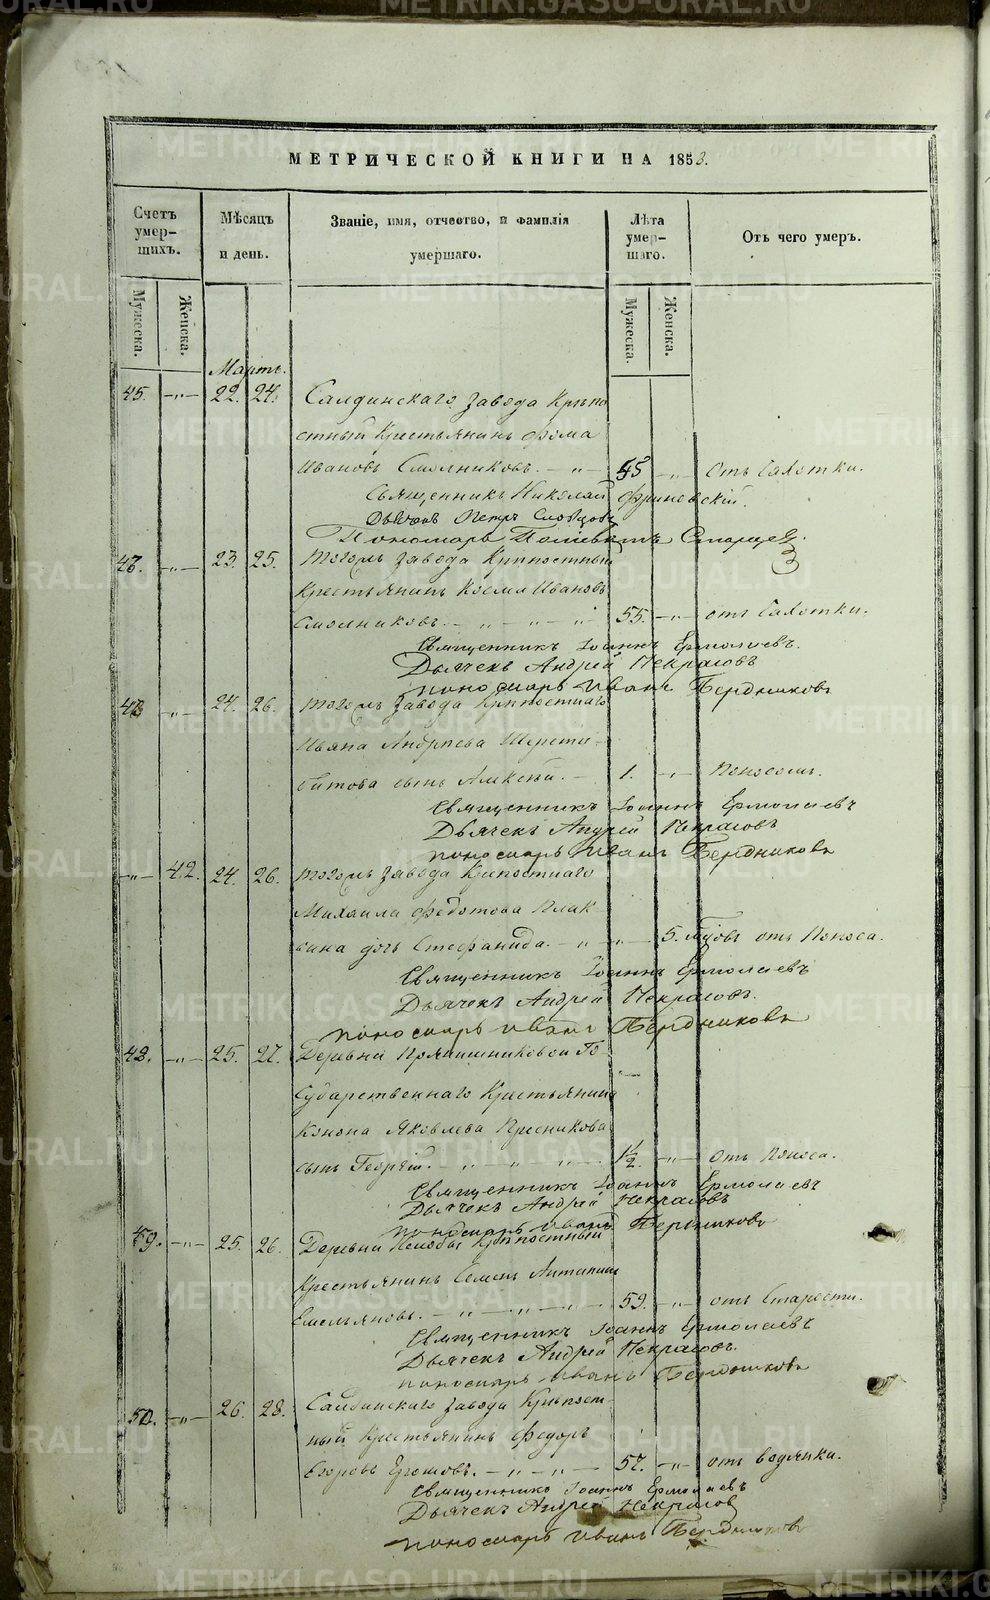 МЕТРИЧЕСКОЙ КНИГИ НА 1853.
Счетъ умер- шихъ.
Мѣсяцъ и день.
Званіе, имя, отчество, и фамилія умершаго.
Лѣта умер- шаго.
Отъ чего умеръ.
Мужеска.
Женска.
Мужеска.
Женска.
Мартъ.
45. —„— 22. 24. Салдинскаго завода Крѣпо-
стный Крестьянинъ Фома
Ивановъ Смольниковъ. — „ — 45 „ Отъ Чахотки.
Священникъ Николай
Дьячокъ Петръ Словцовъ
Пономарь Старцев
—„— 23. 25. Тогожъ завода Крѣпостный
Крестьянинъ Косма Ивановъ
Смольниковъ. — „ — „ — „ 55. —„— отъ Чахотки.
Священникъ Іоаннъ Ермолаевъ.
Дьячекъ Андрей Некрасовъ
пономарь Иванъ Бердниковъ
—„— 24. 26. Тогожъ завода Крѣпостнаго
Ивана Андреева Шерети-
битова сынъ Алексѣй. — 1. —„— Поносомъ.
Священникъ Іоаннъ Ермолаевъ
Дьячекъ Андрей Некрасовъ
пономарь Иванъ Бердниковъ
—„— 42. 24. 26. Тогожъ завода Крѣпостнаго
Михаила Федотова Плак-
сина дочь Стефанида. — „ — „ — 5. отъ Поноса.
Священникъ Іоаннъ Ермолаевъ
Дьячекъ Андрей Некрасовъ.
пономарь Иванъ Бердниковъ
48. —„— 25. 27. Деревни Прянишниковой Го-
сударственнаго Крестьянина
Конона Яковлева Пресникова
сынъ Георгій. — „ — „ — „ — 1½. —„— отъ Поноса.
Священникъ Іоаннъ Ермолаевъ
Дьячекъ Андрей Некрасовъ
пономарь Иванъ Бердниковъ
49. —„— 25. 26. Деревни Нелобы Крѣпостный
Крестьянинъ Семенъ Антипинъ
Емельяновъ. — „ — „ — „ — 59. —„— отъ Старости.
Священникъ Іоаннъ Ермолаевъ
Дьячекъ Андрей Некрасовъ.
пономарь Иванъ Бердниковъ
50. —„— 26. 28. Салдинскаго завода Крѣпост-
ный Крестьянинъ Федоръ
Егоровъ Ергошовъ. — „ — „ — 57. —„— отъ водянки.
Священникъ Іоаннъ Ермолаевъ
Дьячекъ Андрей Некрасов
пономарь Иванъ Бердниковъ
METRIKI.GASO-URAL.RU